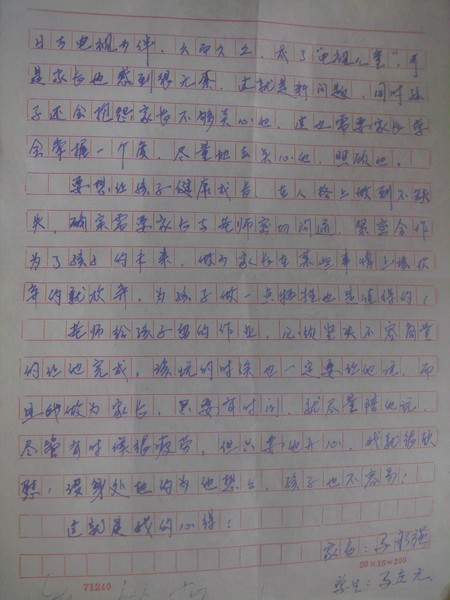 日与电视为伴,久而久之,成了"电视儿童",于
是家长也感到很无奈,这就是新问题,同时孩
子还会抱怨家长不够关心他,这也需要家长学
会掌握一个度,尽量地去关心他,照顾他。
要想让孩子健康成长,在人格上做到不缺
失,确实需要家长与老师密切沟通,紧密合作
为了孩子的未来,做为家长在某些事情上该放
弃的就放弃,为孩子做一点牺牲也是值得的!
老师给孩子留的作业,必须坚决不容商量
的让他完成,该玩的时候也一定要让他玩,而
且我做为家长,只要有时间,就尽量陪他玩,
尽管有时候很疲劳,但只要他开心,我就很欣
慰,设身处地的为他想想,孩子也不容易!
这就是我的心得!
家长:马
20×15=300
学生:马立元
71240